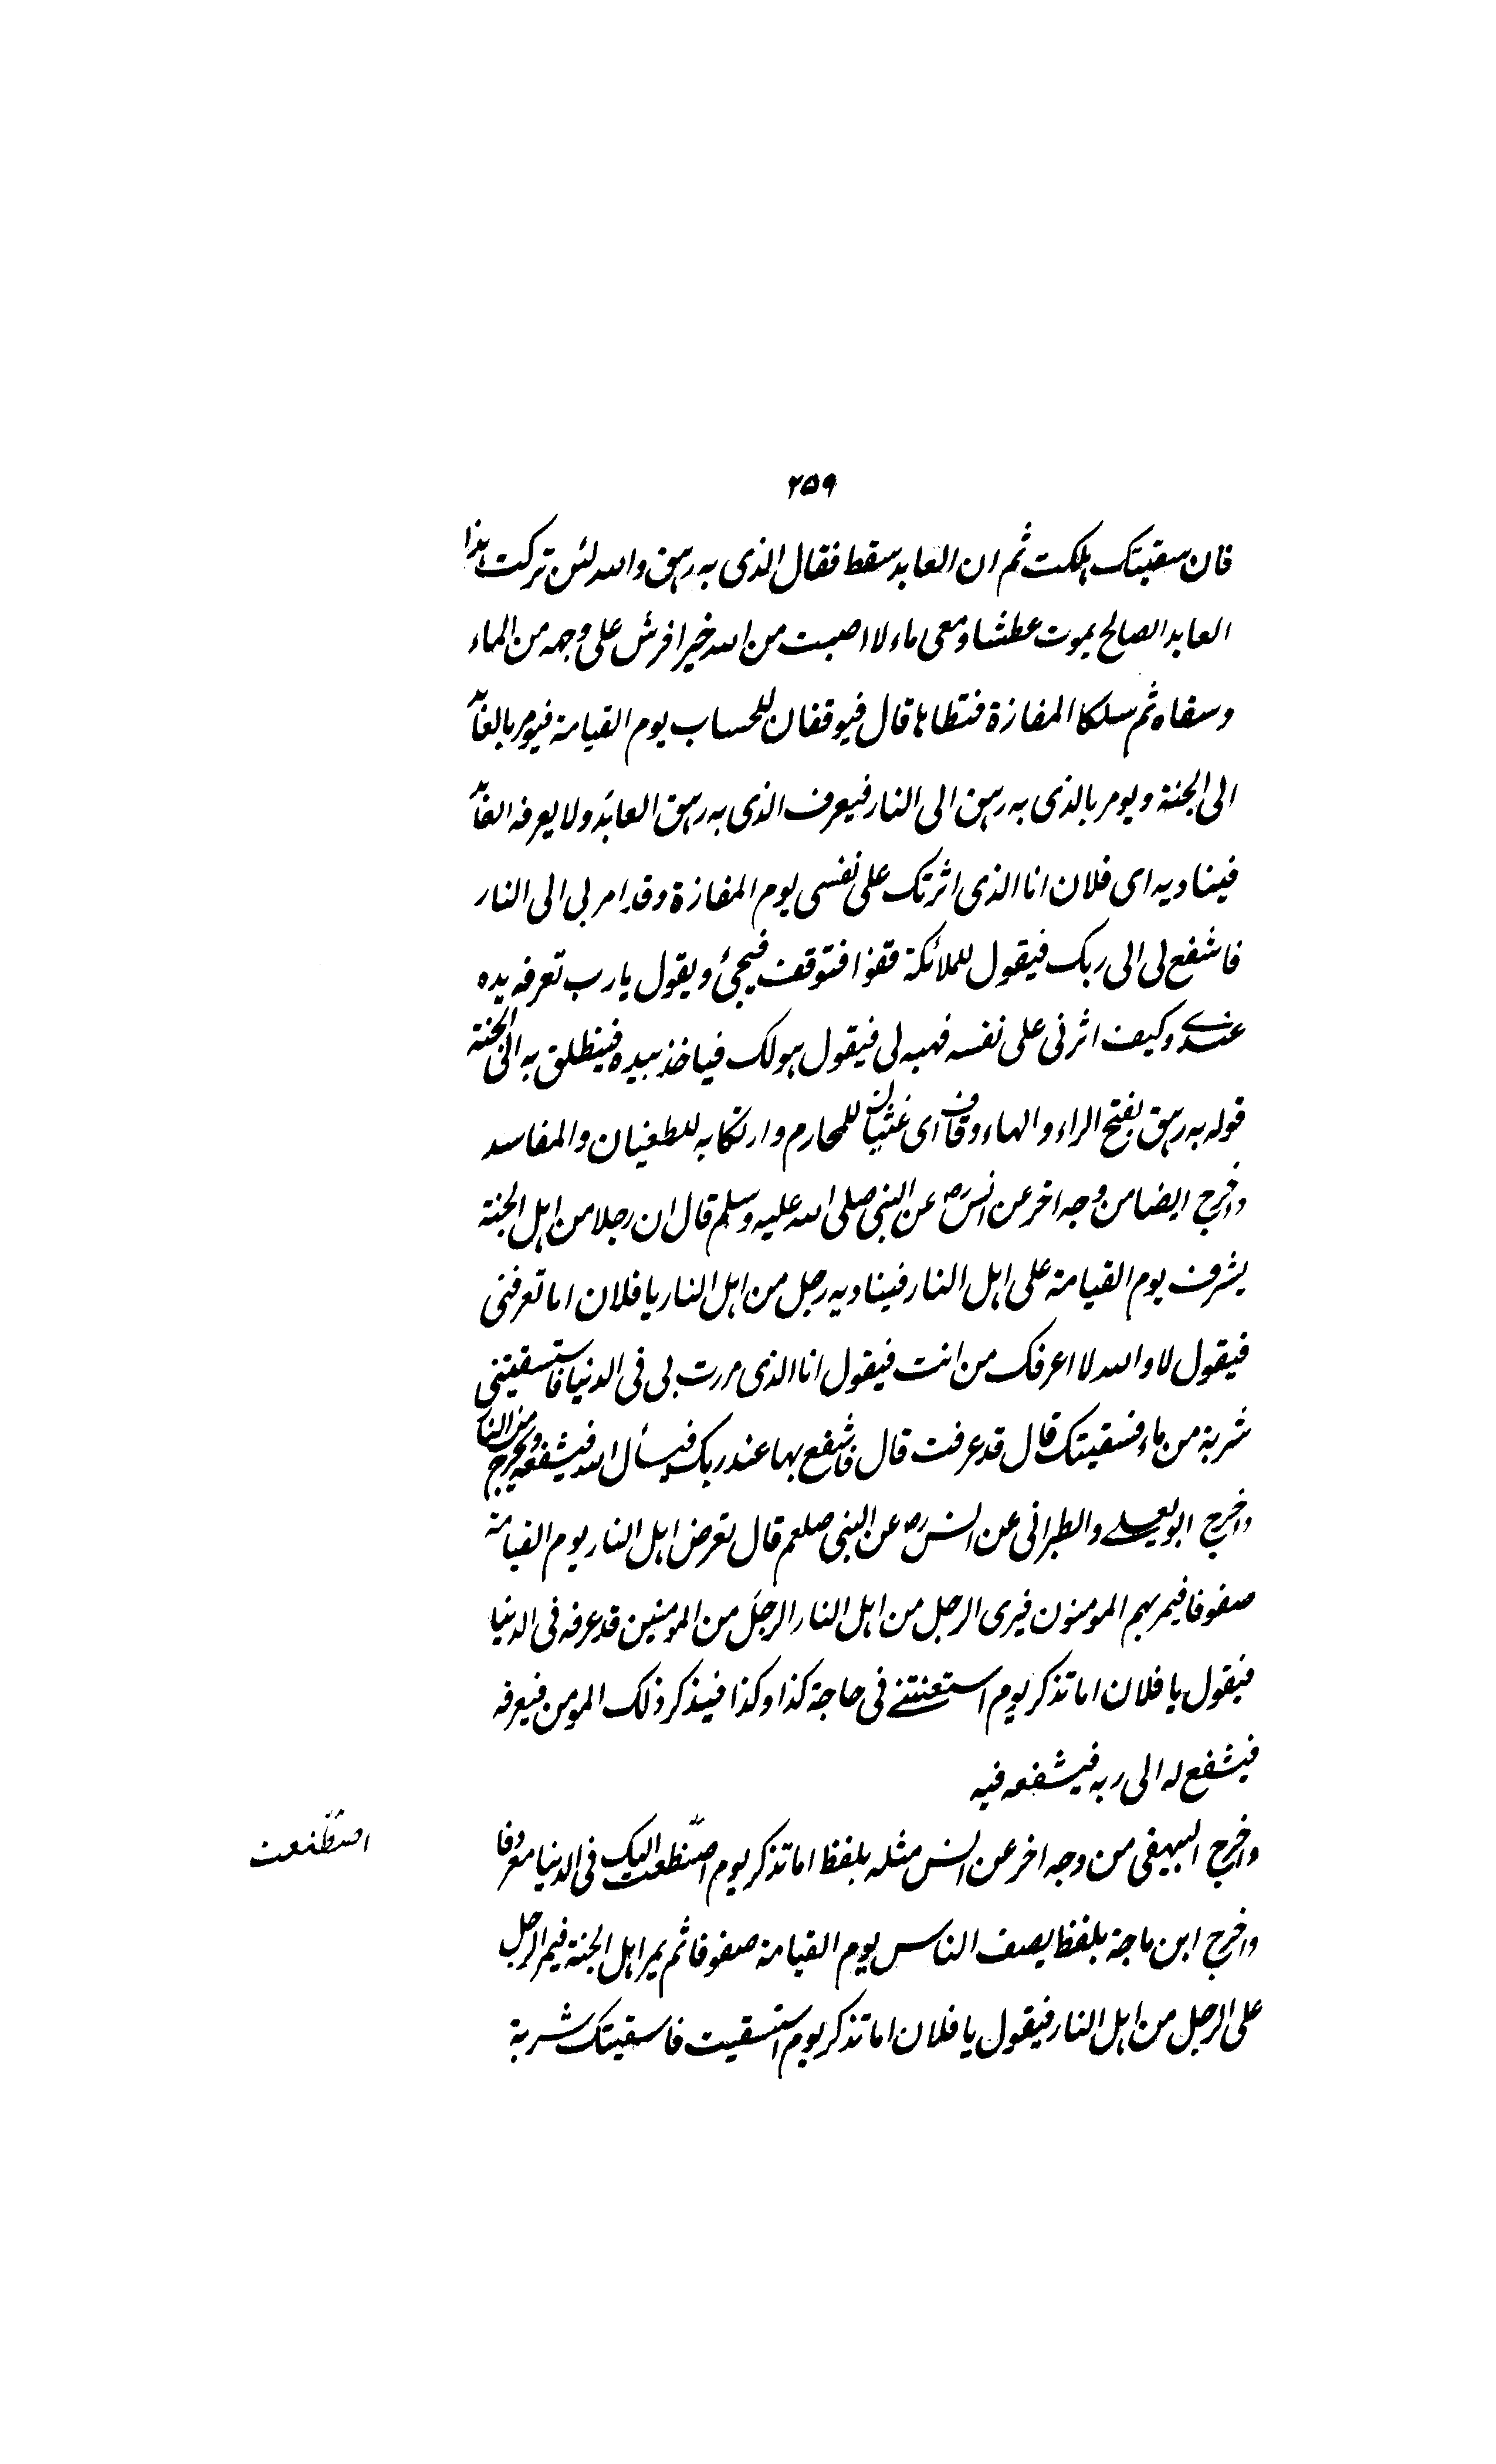 ٢٥٩
فان سقيتك هلكت ثم ان العابد سقط فقال الذى به رهق والله لئن تركت هذا
العابد الصالح يموت عطشا ومعى ماء لا اصبت من الله خيرا فرش على وجهه من الماء
وسقاه ثم سلكا المفازة فقطاها قال فيوقفان للحساب يوم القيامة فيومر بالعابد
الى الجنة ويومر بالذى به رهق الى النار فيعرف الذى به رهق العابد ولا يعرفه العابد
فيناديه اى فلان انا الذى اثرتك على نفسى يوم المفازة وقد امر بى الى النار
فاشفع لى الى ربك فيقول للملائكة قفوا فتوقف فيجئ ويقول يا رب تعرف يده
عندے وكيف اثرنى على نفسه فهبه لى فيقول هو لك فياخذ بيده فينطلق به الى الجنة
قوله به رهق بفتح الراء والهاء وقاف اى غشيان للمحارم وارتكابه للطغيان والمفاسد
واخرج ايضا من وجه اخر عن انس رض عن النبى صلى الله عليه وسلم قال ان رجلا من اهل الجنة
يشرف يوم القيامة على اهل النار فيناديه رجل من اهل النار يا فلان اما تعرفنى
فيقول لا والله لا اعرفك من انت فيقول انا الذى مررت بى فى الدنيا فاستسقيتنى
شربة من ماء فسقيتك قال قد عرفت قال فاشفع بها عند ربك فيسأل الله فيشفعه ويخرج من النار
واخرج ابو يعلے والطبرانى عن انس رض عن النبى صلعم قال تعرض اهل النار يوم القيامة
صفوفا فيمر بهم المومنون فيرى الرجل من اهل النار الرجل من المومنين قد عرفه فى الدنيا
فيقول يا فلان اما تذكر يوم استعنتنے فى حاجة كذا وكذا فيذكر ذلك المومن فيعرفه
فيشفع له الى ربه فيشفعه فيه
واخرج البيهقى من وجه اخر عن انس مثله بلفظ اما تذكر يوم اصنطعت اليك فى الدنيا معروفا
اصطنعت
واخرج ابن ماجة بلفظ يصف الناس يوم القيامة صفوفا ثم يمر اهل الجنة فيمر الرجل
على الرجل من اهل النار فيقول يا فلان اما تذكر يوم استسقيت فاسقيتك شربة